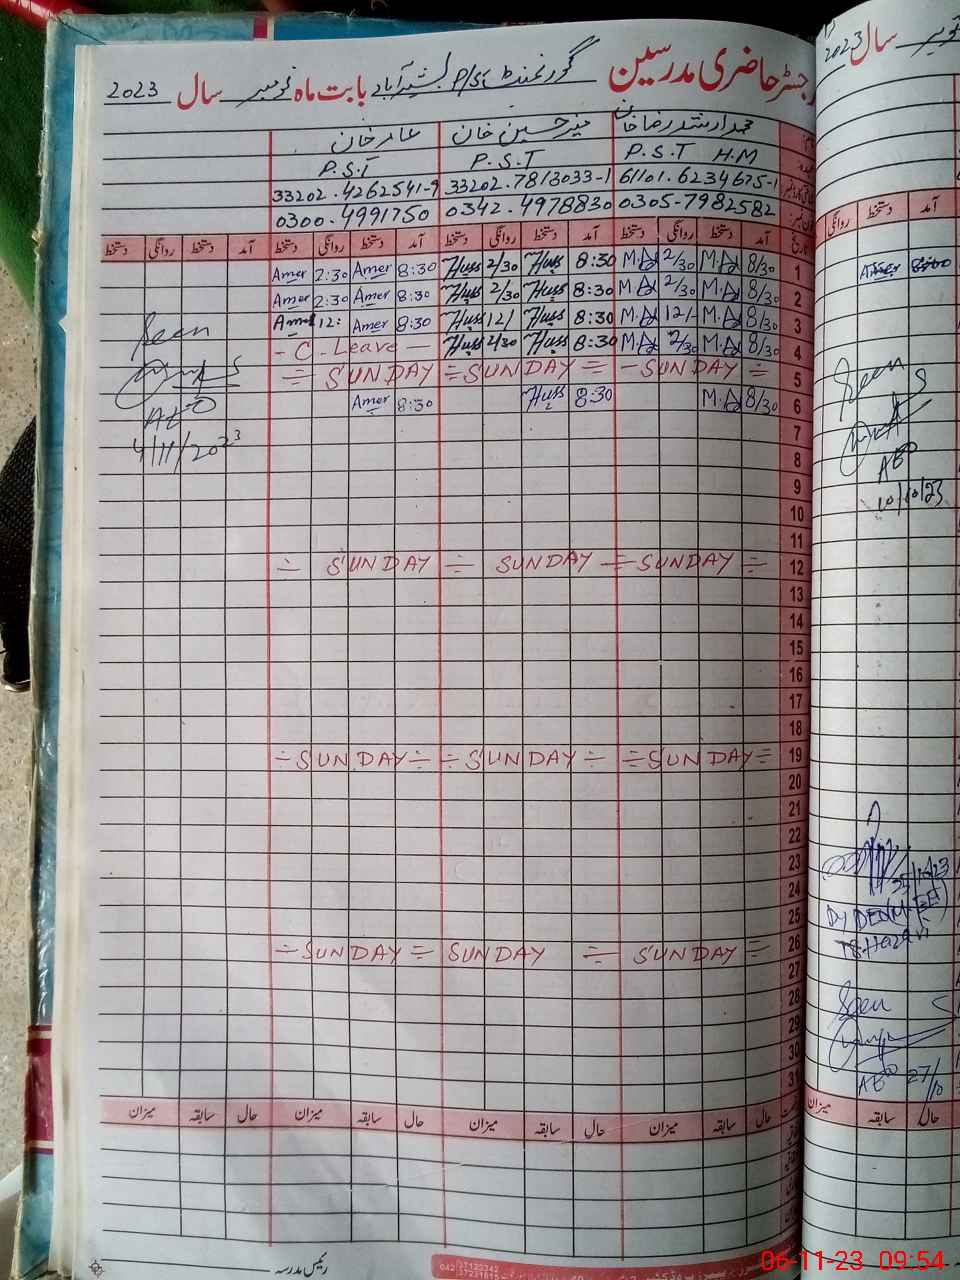 رجسٹر حاضری مدرسین گورنمنٹ P/S بشیرآباد بابت ماہ نومبر سال 2023
محمد ارشد رضا خان منیر حسین خان عامر خان
P.S.T H.M P.S.T P.S.T
61101.6234675-1 33202.7813033-1 33202.4262541-9
0305-7982582 0342.4978830 0300.4991750
آمد دستخط روانگی دستخط آمد دستخط روانگی دستخط آمد دستخط روانگی دستخط آمد دستخط روانگی دستخط
1 8/30 M.A 2/30 M.A 8:30 Huss 2/30 Huss 8:30 Amer 2:30 Amer
2 8/30 M.A 2/30 M.A 8:30 Huss 2/30 Huss 8:30 Amer 2:30 Amer
3 8/30 M.A 12/- M.A 8:30 Huss 12/ Huss 8:30 Amer 12: Amer
4 8/30 M.A 2/30 M.A 8:30 Huss 2/30 Huss - C. Leave -
5 SUNDAY SUNDAY SUNDAY
6 8/30 M.A 8:30 Huss 8:30 Amer
7
8
9
10
11
12 SUNDAY SUNDAY SUNDAY
13
14
15
16
17
18
19 SUNDAY SUNDAY SUNDAY
20
21
22
23
24
25
26 SUNDAY SUNDAY SUNDAY
27
28
29
30
31
حال سابقہ میزان حال سابقہ میزان حال سابقہ میزان حال سابقہ میزان
رئیس مدرسہ
Seen
AEO
4/11/2023
2023 سال
آمد دستخط روانگی
Seen
AEO
10/10/23
Seen
AEO 27/10
حال سابقہ میزان
06-11-23 09:54